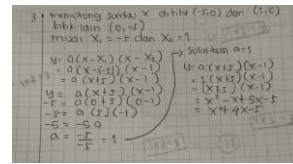 3. • memotong sumbu x dititik (-5,0) dan (1,0)
titik lain (0,-5)
misal x₁ = -5 dan x₂ = 1
y = a(x-x₁)(x-x₂)
= a(x-(-5))(x-1)
= a(x+5)(x-1)
y = a(x+5)(x-1)
-5 = a(0+5)(0-1)
-5 = a(5)(-1)
-5 = -5a
a = -5/-5 = 1
→ Subtitusi a=1
y = a(x+5)(x-1)
= 1(x+5)(x-1)
= (x+5)(x-1)
= x² - x + 5x - 5
= x² + 4x - 5